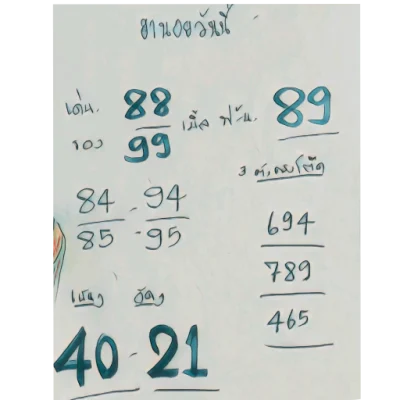 ฮานอยวันนี้
เด่น. 88 เบิ้ล ฟัน. 89
รอง 99
84 - 94
85 - 95
3 ตัวตรงโต๊ด
694
789
465
เน้นๆ
40 - 21